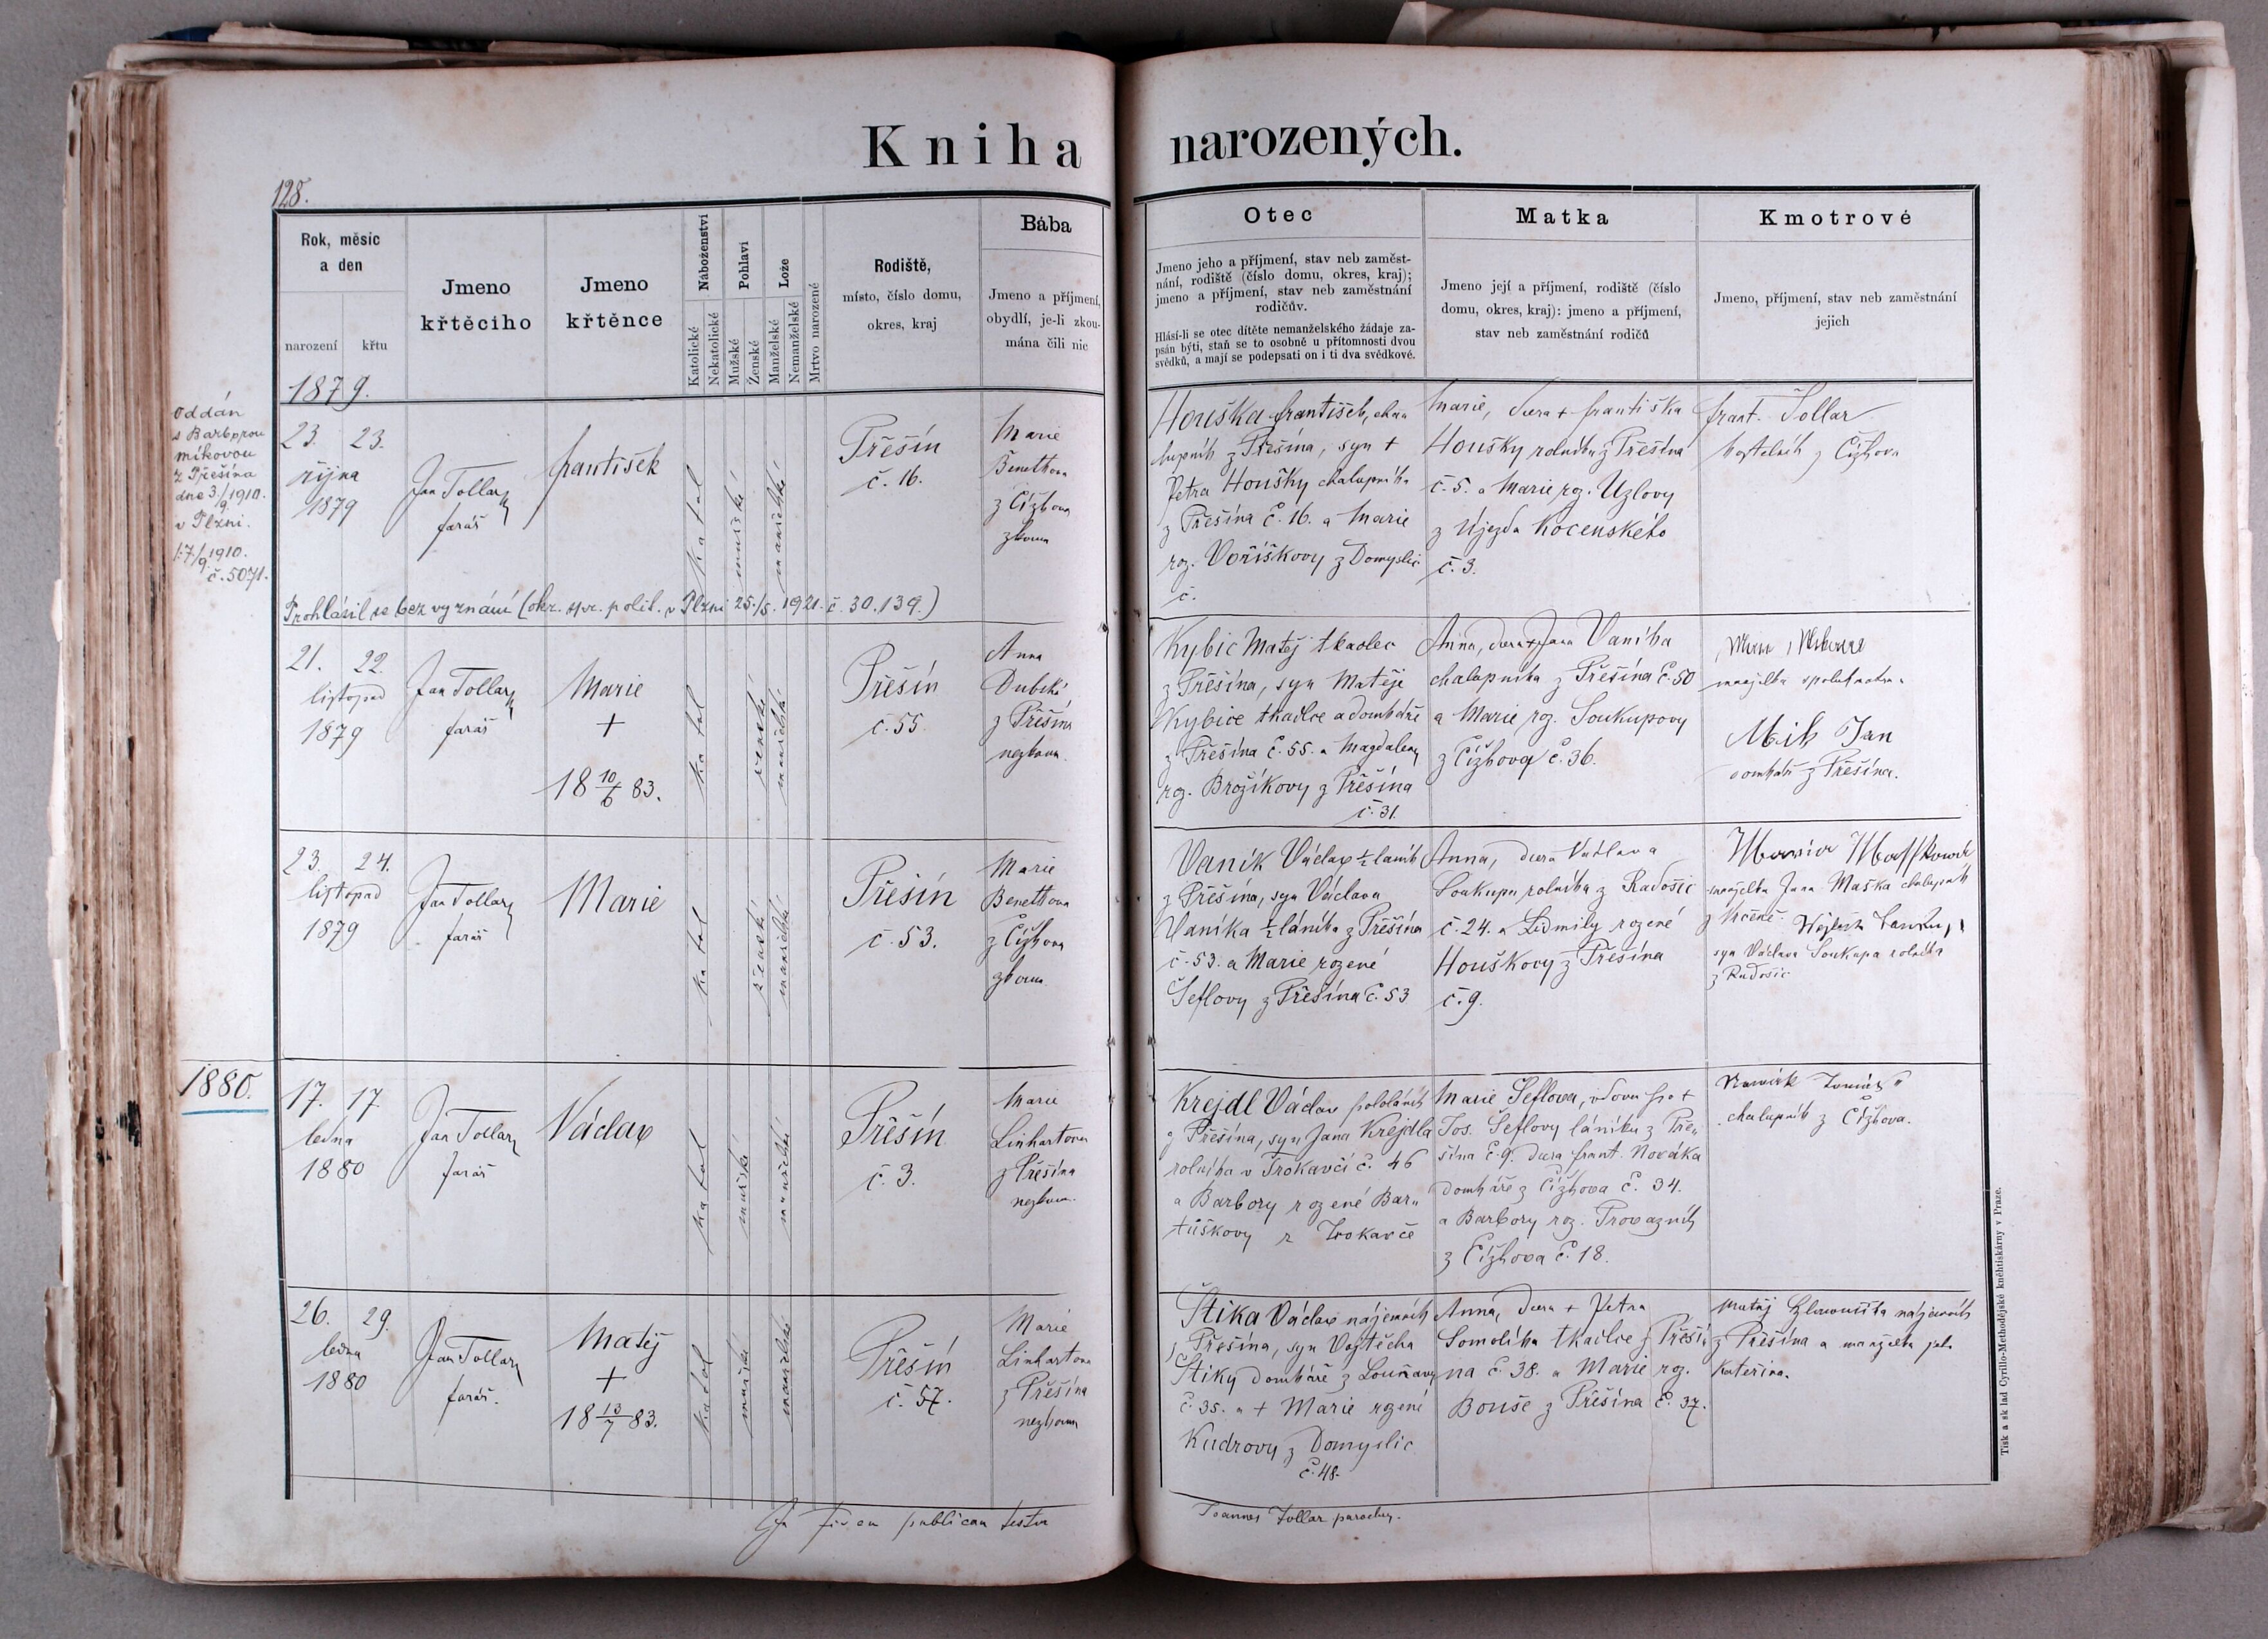 Kniha narozených.
128.
Rok, měsíc
a den
narození
křtu
Jmeno
křtěcího
Jmeno
křtěnce
Náboženství
Katolické
Nekatolické
Pohlaví
Mužské
Ženské
Lože
Manželské
Nemanželské
Mrtvo narozené
Rodiště,
místo, číslo domu,
okres, kraj
Bába
Jmeno a příjmení,
obydlí, je-li zkou-
mána čili nic
Otec
Jmeno jeho a příjmení, stav neb zaměst-
nání, rodiště (číslo domu, okres, kraj);
jmeno a příjmení, stav neb zaměstnání
rodičův.
Hlásí-li se otec dítěte nemanželského žádaje za-
psán býti, staň se to osobně u přítomnosti dvou
svědků, a mají se podepsati on i ti dva svědkové.
Matka
Jmeno její a příjmení, rodiště (číslo
domu, okres, kraj): jmeno a příjmení,
stav neb zaměstnání rodičů
Kmotrové
Jmeno, příjmení, stav neb zaměstnání
jejich
1879.
oddán
s Barborou
Míkovou
z Přešína
dne 3/9 1910.
v Plzni.
17/9 1910.
č. 5071.
23. 23.
října
1879
Jan Tollar
farář
František
katol
mužské
manželské
Přešín
č. 16.
Marie
Benethova
z Čížkova
zkoum
Houška František, cha„
lupník z Přešína, syn +
Petra Houšky chalupníka
z Přešína č. 16. a Marie
roz. Voříškovy z Domyslic
č.
Marie, dcera + Františka
Houšky rolníka z Přešína
č. 5. a Marie roz. Uzlovy
z Újezda Kocenského
č. 3.
Frant. Tollar
kostelník z Čížkova
Prohlásil se bez vyznání (okr. spr. polit. v Plzni 25./5. 1921. č. 30.139.)
21. 22.
listopad
1879
Jan Tollar
farář
Marie
+
18 10/6 83.
katol
ženské
manželské
Přešín
č. 55.
Anna
Dubská
z Přešína
nezkoum.
Kybic Matěj tkadlec
z Přešína, syn Matěje
Kybice tkadlce a domkáře
z Přešína č. 55. a Magdaleny
roz. Brožíkovy z Přešína
č. 31.
Anna, dcera + Jana Vaníka
chalupníka z Přešína č. 50
a Marie roz. Soukupovy
z Čížkova č. 36.
manželka
Mik Jan
domkář z Přešína.
23. 24.
listopad
1879
Jan Tollar
farář
Marie
katol
ženské
manželské
Přešín
č. 53.
Marie
Benethova
z Čížkova
zkoum.
Vaník Václav ½ laník
z Přešína, syn Václava
Vaníka ½ láníka z Přešína
č. 53. a Marie rozené
Šeflovy z Přešína č. 53
Anna, dcera Václava
Soukupa rolníka z Radošic
č. 24. a Lidmily rozené
Houškovy z Přešína
č. 9.
manželka Jana Maška chalupník
syn Václava Soukupa rolníka
z Radošic
1880.
17. 17.
ledna
1880
Jan Tollar
farář
Václav
katol
mužské
manželské
Přešín
č. 3.
Marie
Linhartova
z Přešína
nezkoum.
Krejdl Václav pololáník
z Přešína, syn Jana Krejdla
rolníka v Trokavči č. 46
a Barbory rozené Bar„
tůškovy z Trokavče
Marie Šeflova, vdova po +
Jos. Šeflovy láníku z Pře„
šína č. 9. dcera Frant. Nováka
domkáře z Čížkova č. 34.
a Barbory roz. Provazník
z Čížkova č. 18.
chalupník z Čížkova.
26. 29.
ledna
1880
Jan Tollar
farář.
Matěj
+
18 13/7 83.
katol
mužské
manželské
Přešín
č. 57.
Marie
Linhartova
z Přešína
nezkoum
Štika Václav nájemník
z Přešína, syn Vojtěcha
Štiky domkáře z Louňavy
č. 35. a + Marie rozené
Kudrovy z Domyslic
č. 48.
Anna, dcera + Petra
Somolíka tkadlce z Přeší„
na č. 38. a Marie roz.
Bouše z Přešína č. 37.
Matěj nájemník
z Přešína a manželka jeho
Kateřina.
publicam testor
Joannes Tollar parochus.
Tisk a sklad Cyrillo-Methodějské knihtiskárny v Praze.